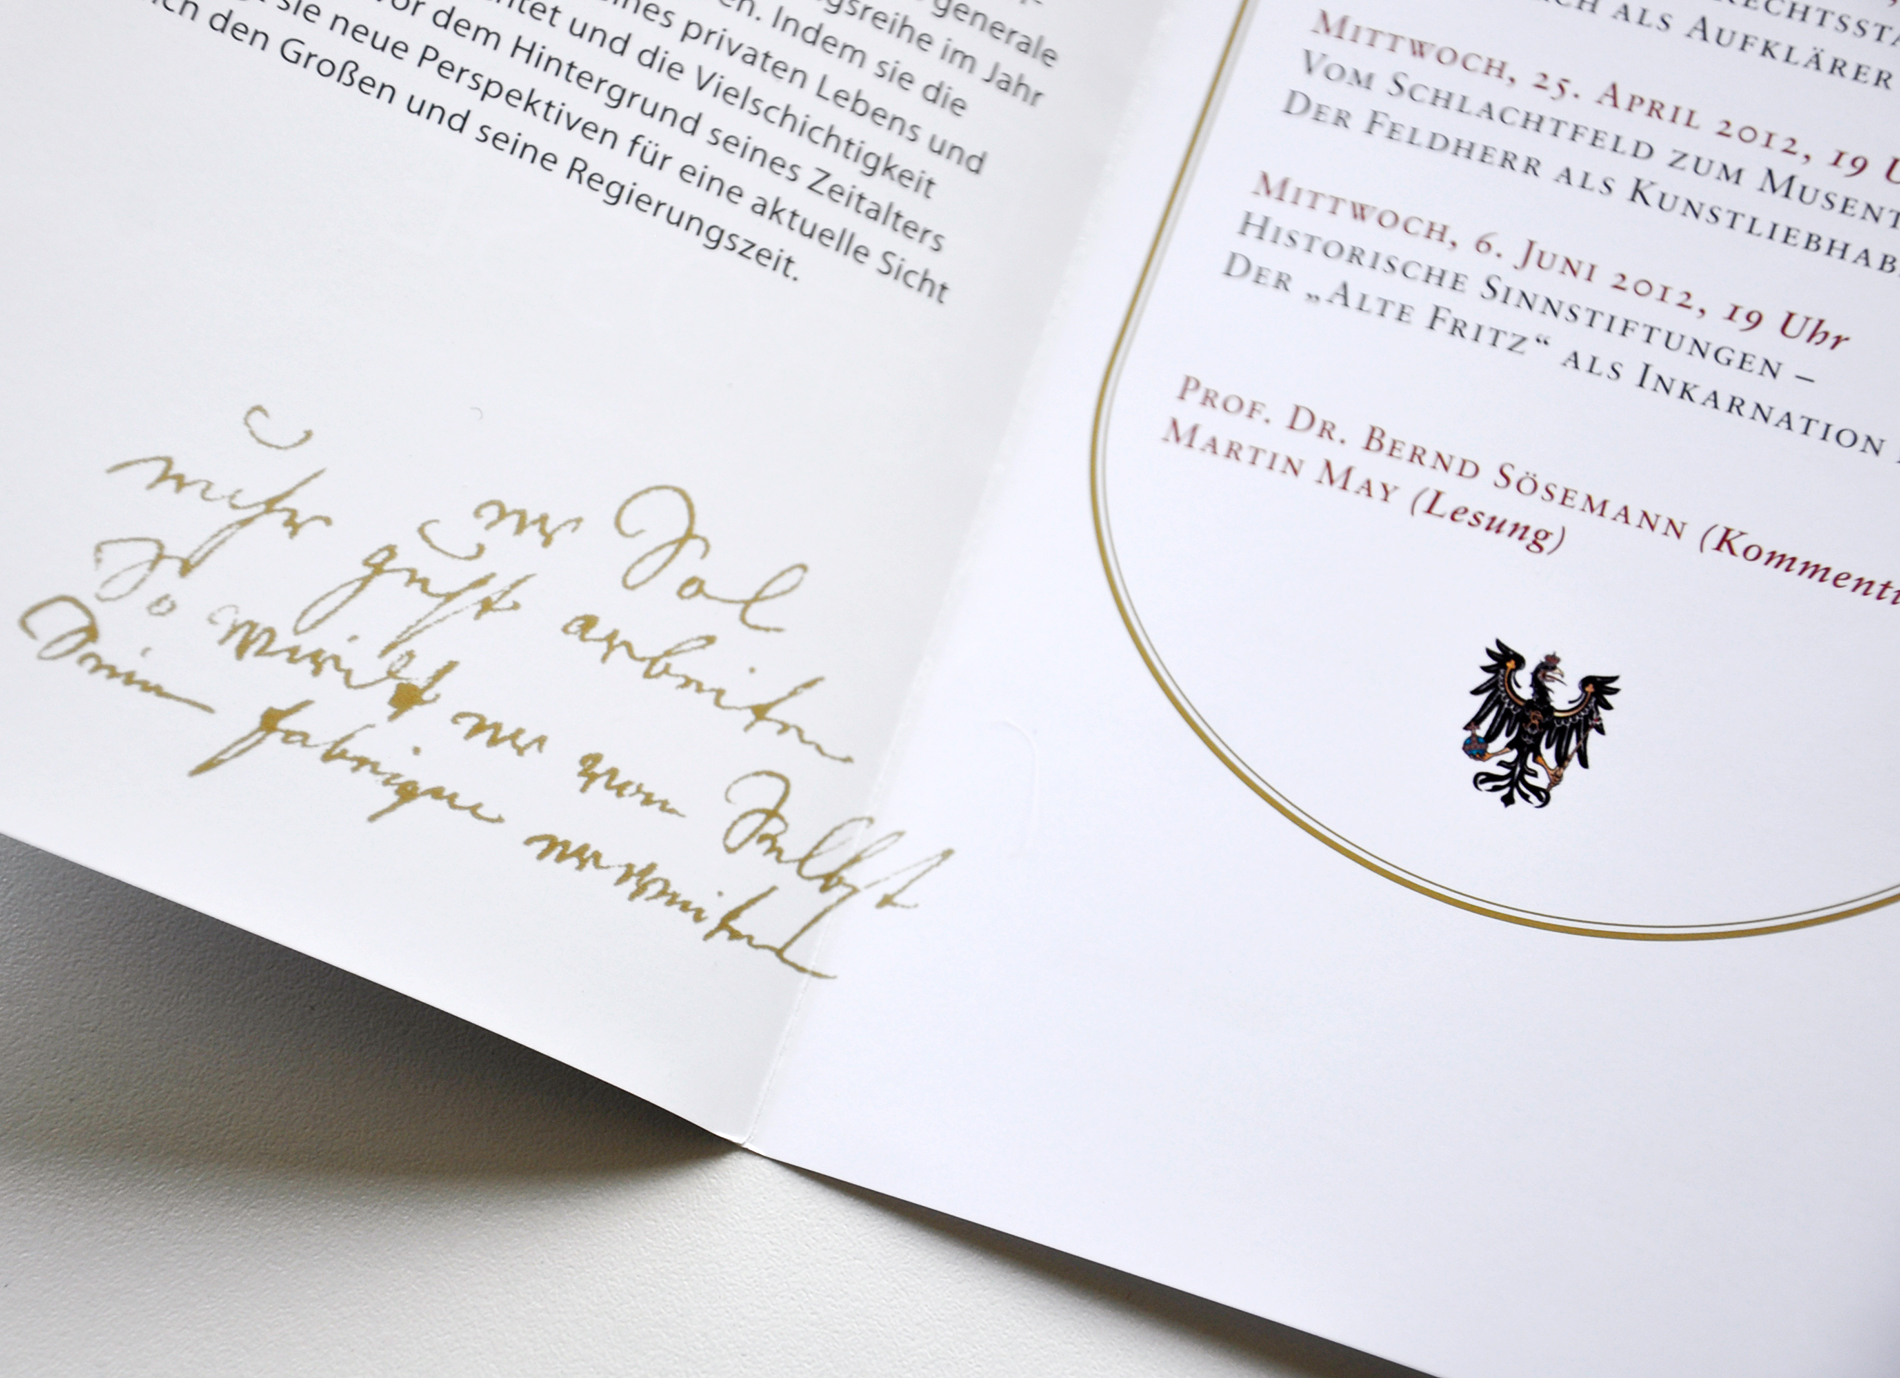 generale
gsreihe im Jahr
en. Indem sie die
ines privaten Lebens und
tet und die Vielschichtigkeit
or dem Hintergrund seines Zeitalters
sie neue Perspektiven für eine aktuelle Sicht
ich den Großen und seine Regierungszeit.
er Sol
mehr guht arbeiten
So wirdt er von Selbst
Sein fabrique erweitern
RECHTSSTA
CH ALS AUFKLÄRER
MITTWOCH, 25. APRIL 2012, 19 U
VOM SCHLACHTFELD ZUM MUSENT
DER FELDHERR ALS KUNSTLIEBHAB
MITTWOCH, 6. JUNI 2012, 19 Uhr
HISTORISCHE SINNSTIFTUNGEN –
DER „ALTE FRITZ“ ALS INKARNATION
PROF. DR. BERND SÖSEMANN (Kommenti
MARTIN MAY (Lesung)